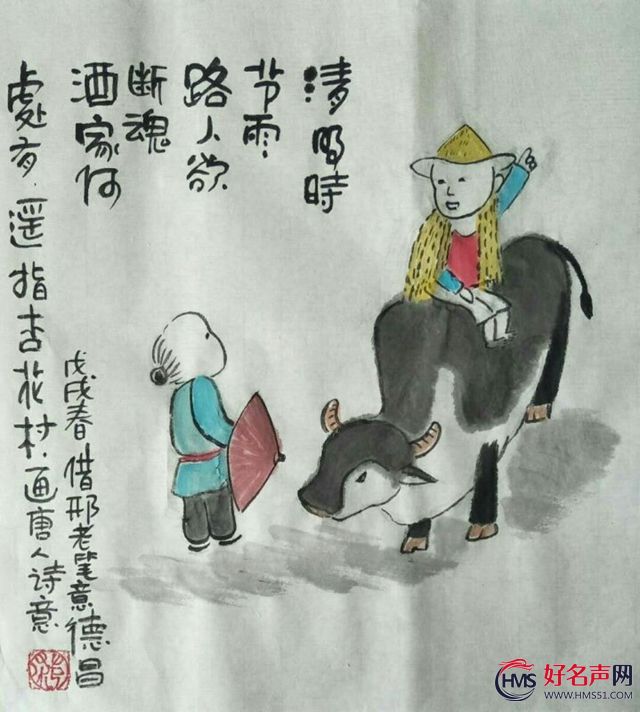 清明時
节雨
路人欲
断魂
酒家何
處有.遥指杏花村.画唐人诗意
戊戌春 借邢老笔意德昌
HMS 好名声网
WWW.HMS51.COM